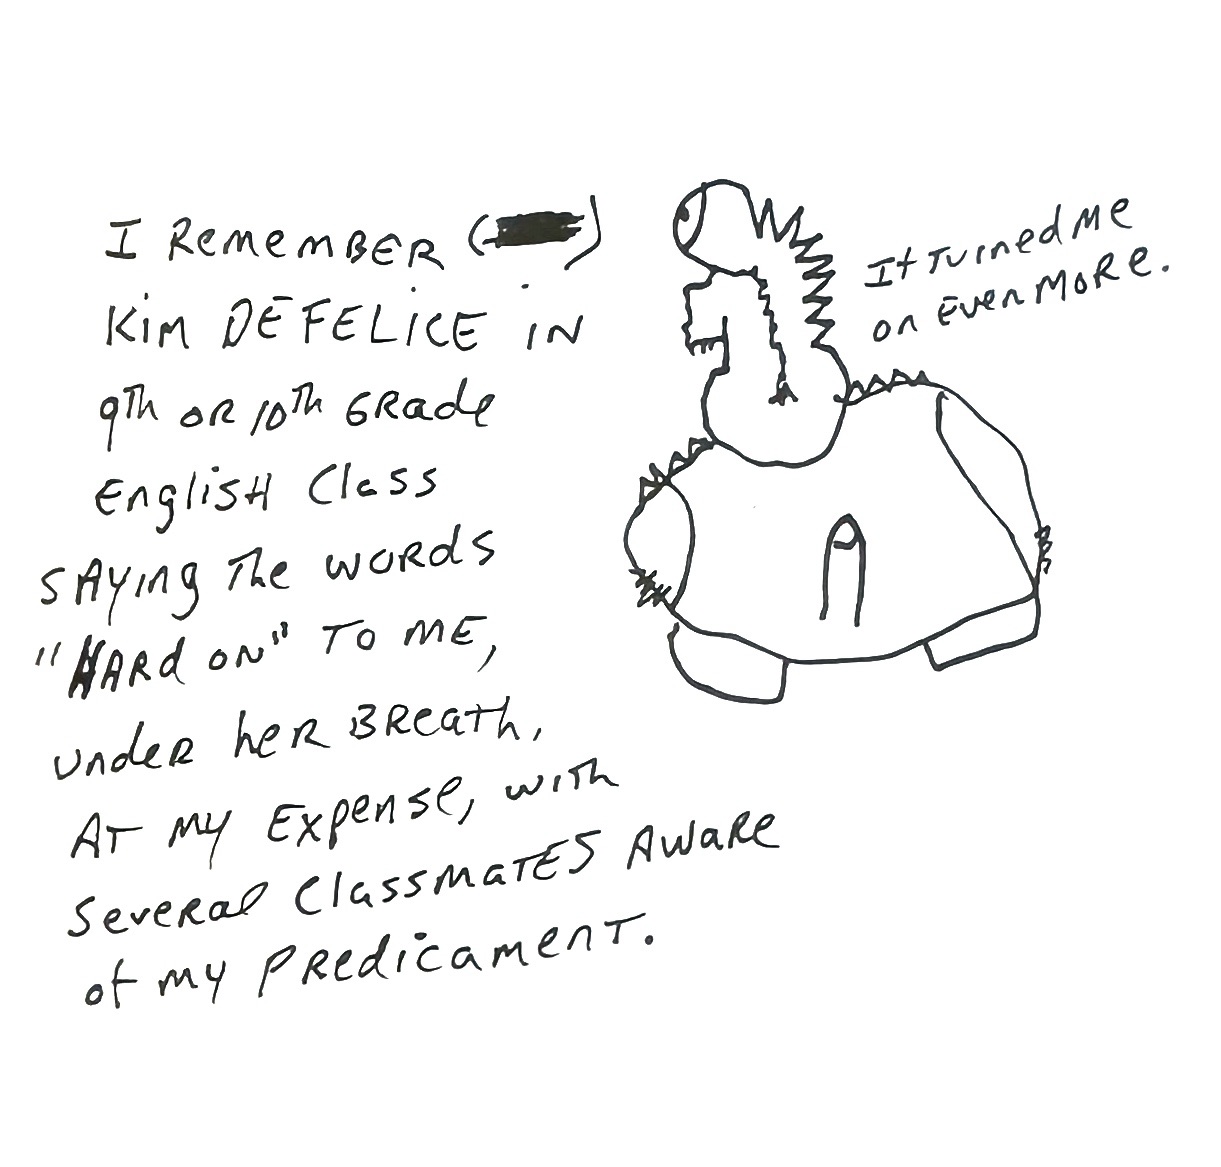 I REMEMBER ( )
KIM DEFELICE IN
9TH OR 10TH GRADE
ENGLISH CLASS
SAYING THE WORDS
"HARD ON" TO ME,
UNDER HER BREATH,
AT MY EXPENSE, WITH
SEVERAL CLASSMATES AWARE
OF MY PREDICAMENT.
It TURNED ME
ON EVEN MORE.